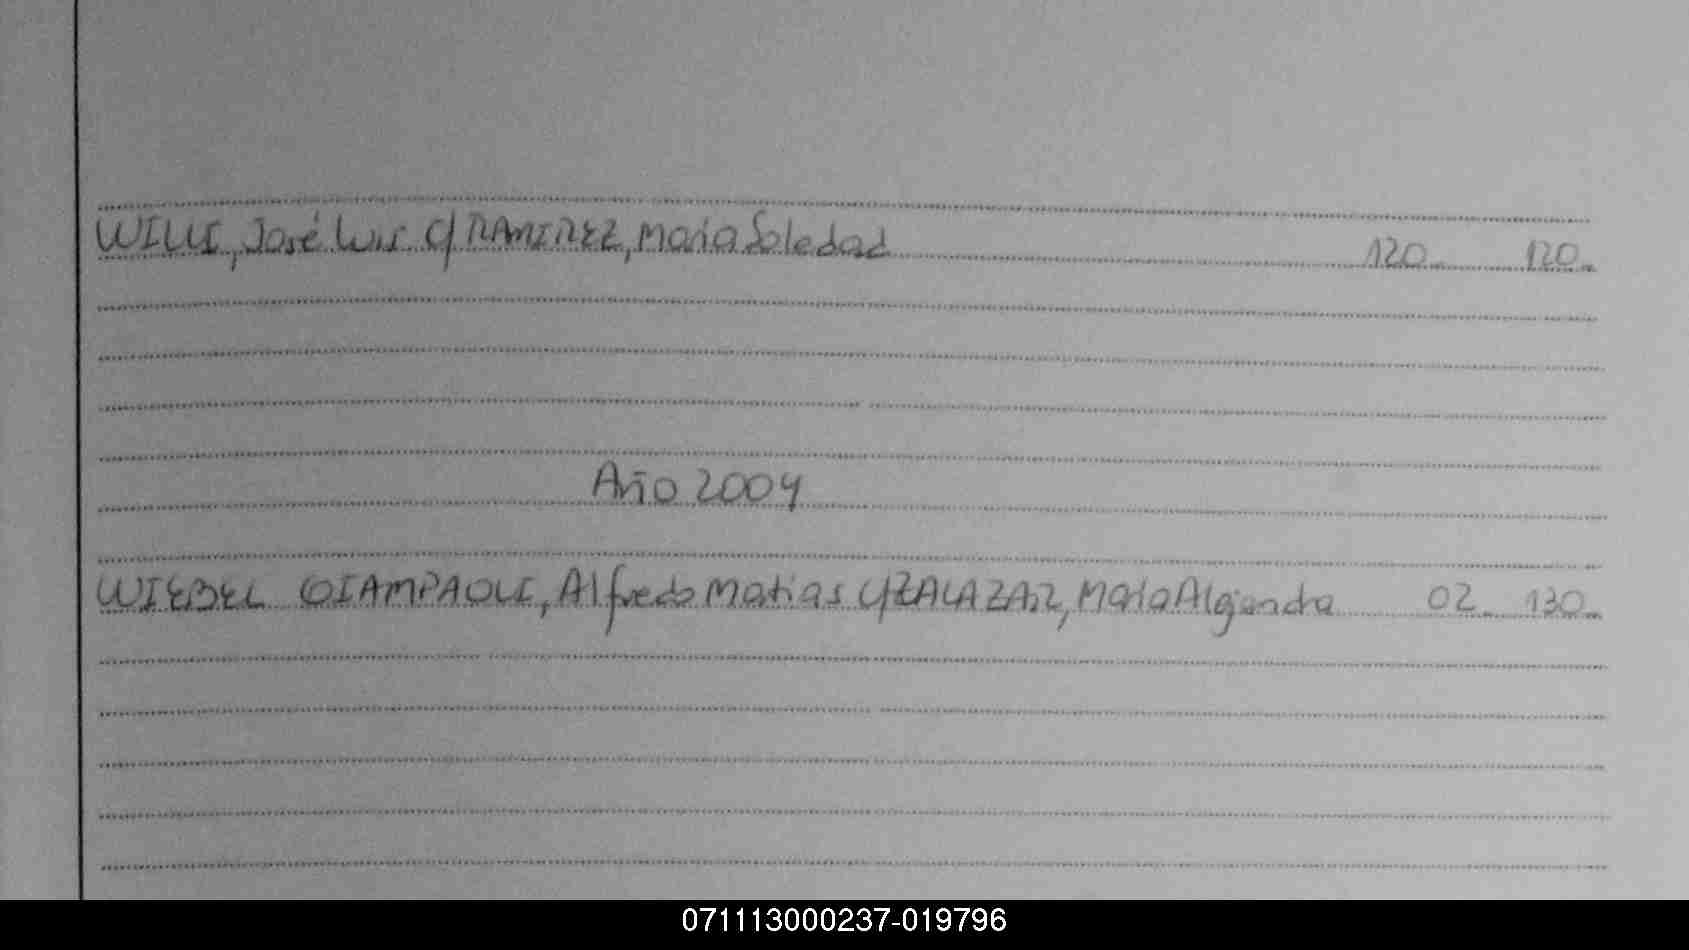 WILLI, José Luis C/ RAMIREZ, Maria Soledad 120 120
Año 2004
WIEBEL GIAMPAOLI, Alfredo Matias C/ ZALAZAR, Maria Alejandra 02 130
071113000237-019796